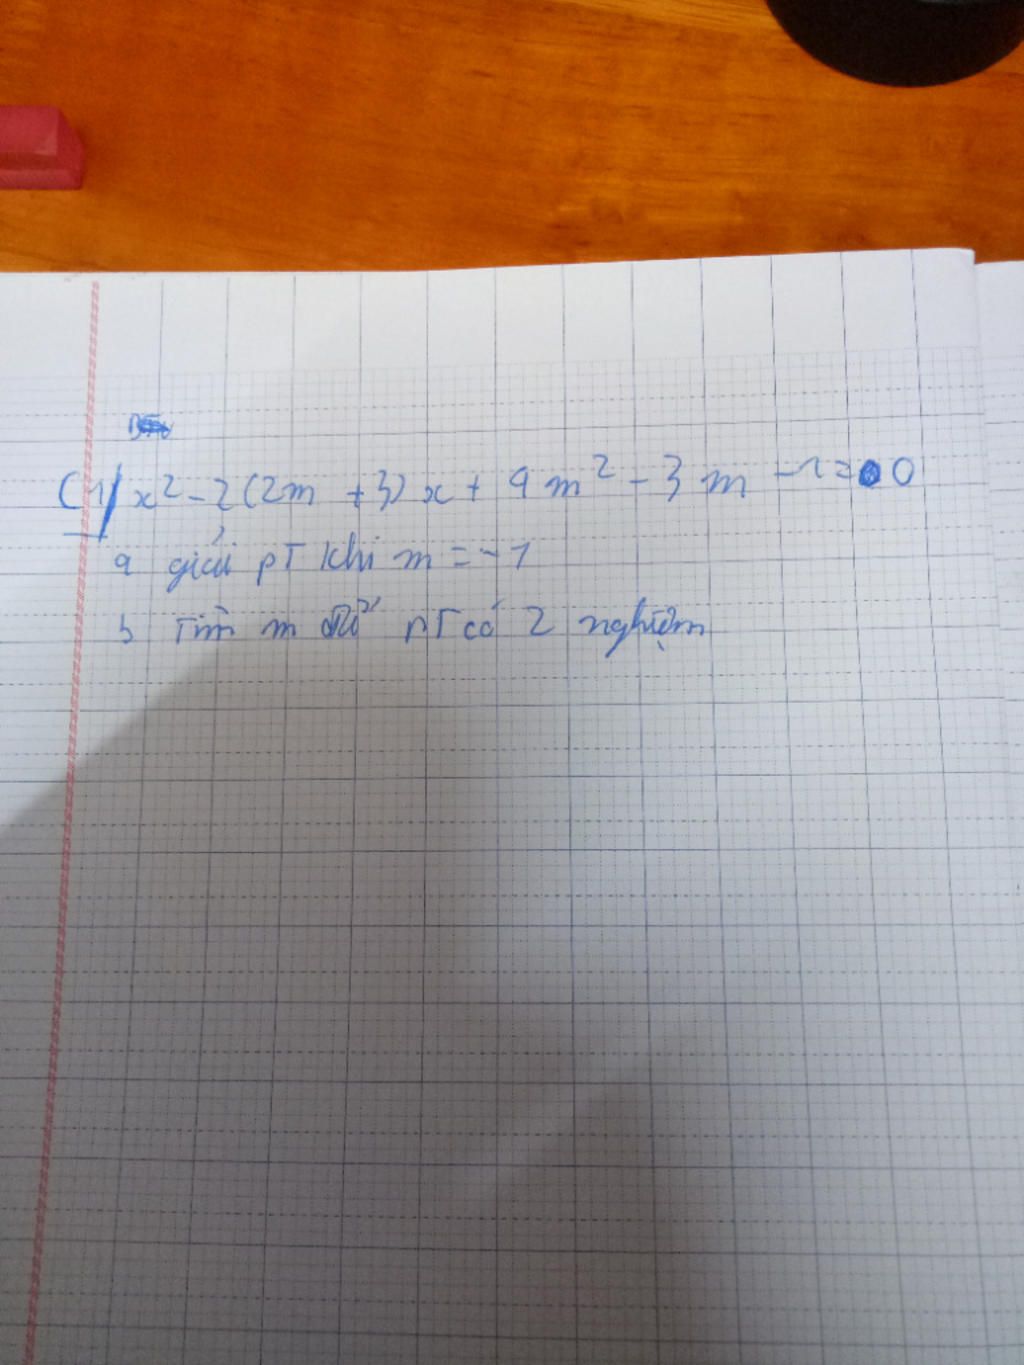 C1/ x² - 2(2m + 3)x + 9m² - 3m - 1 = 0
a giải pT khi m = -1
b Tìm m để pT có 2 nghiệm